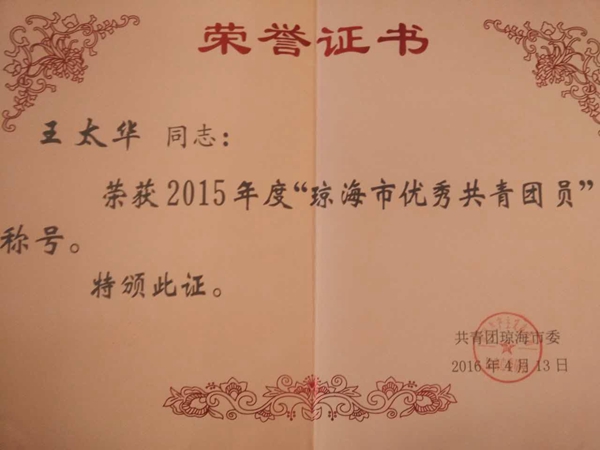 荣誉证书
王太华 同志：
荣获2015年度“琼海市优秀共青团员”
称号。
特颁此证。
共青团琼海市委
2016年4月13日